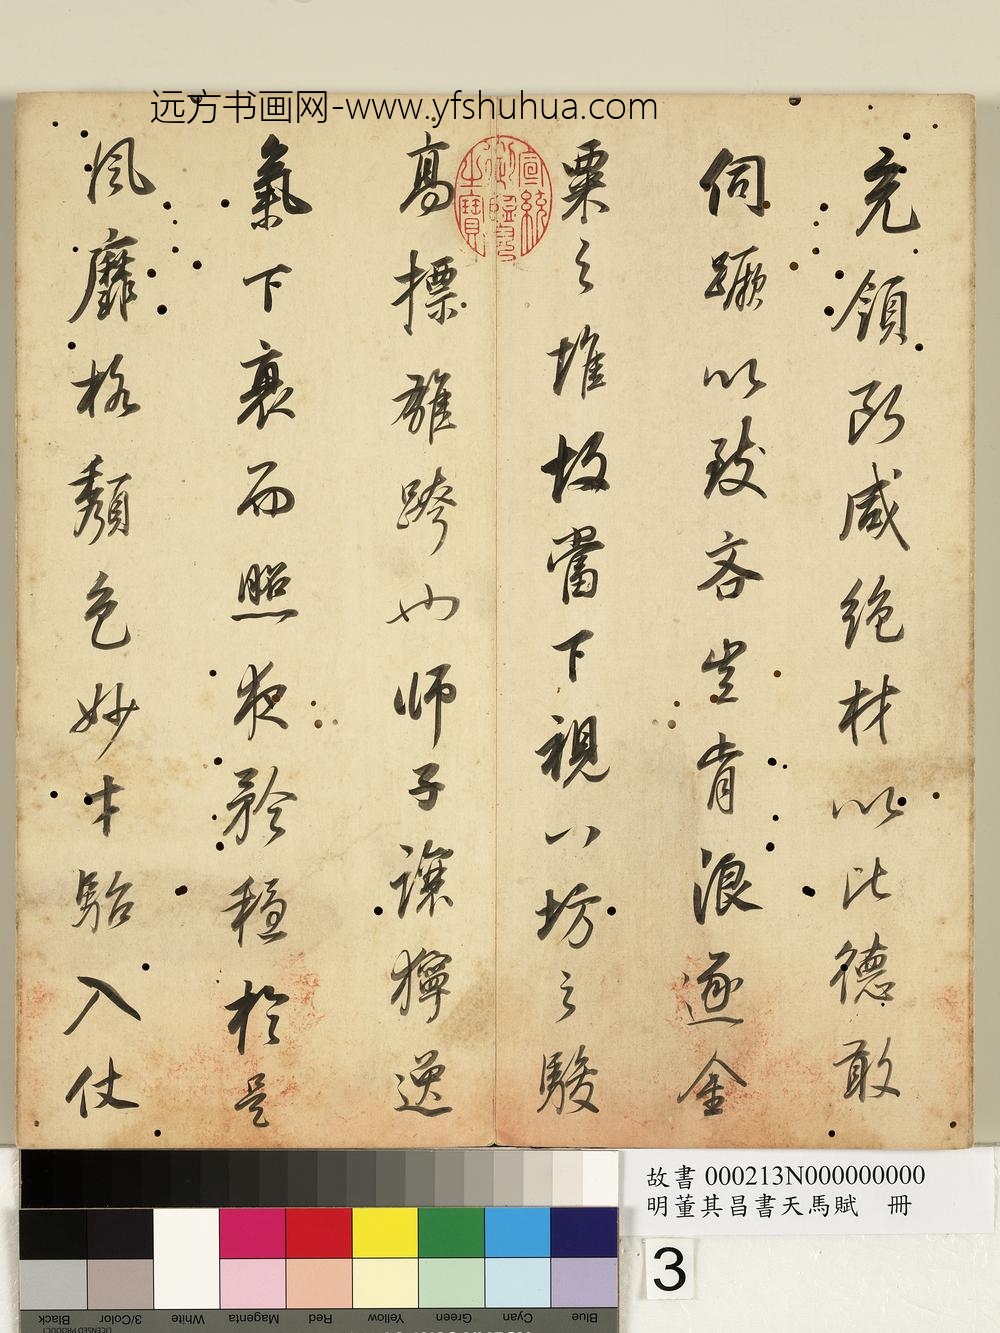 远方书画网-www.yfshuhua.com
充領斷咸絶材以比德敢
伺蹶以致吝豈肯浪逐金
粟之堆故當下視八坊之駿
高標雄跨而師子讓獰逸
氣下衰而照夜矜穩於是
風靡格頹色妙才駘入仗
宣統御覽之寶
故書 000213N000000000
明董其昌書天馬賦 冊
3
Blue Cyan Green Yellow Red Magenta White 3/Color Black